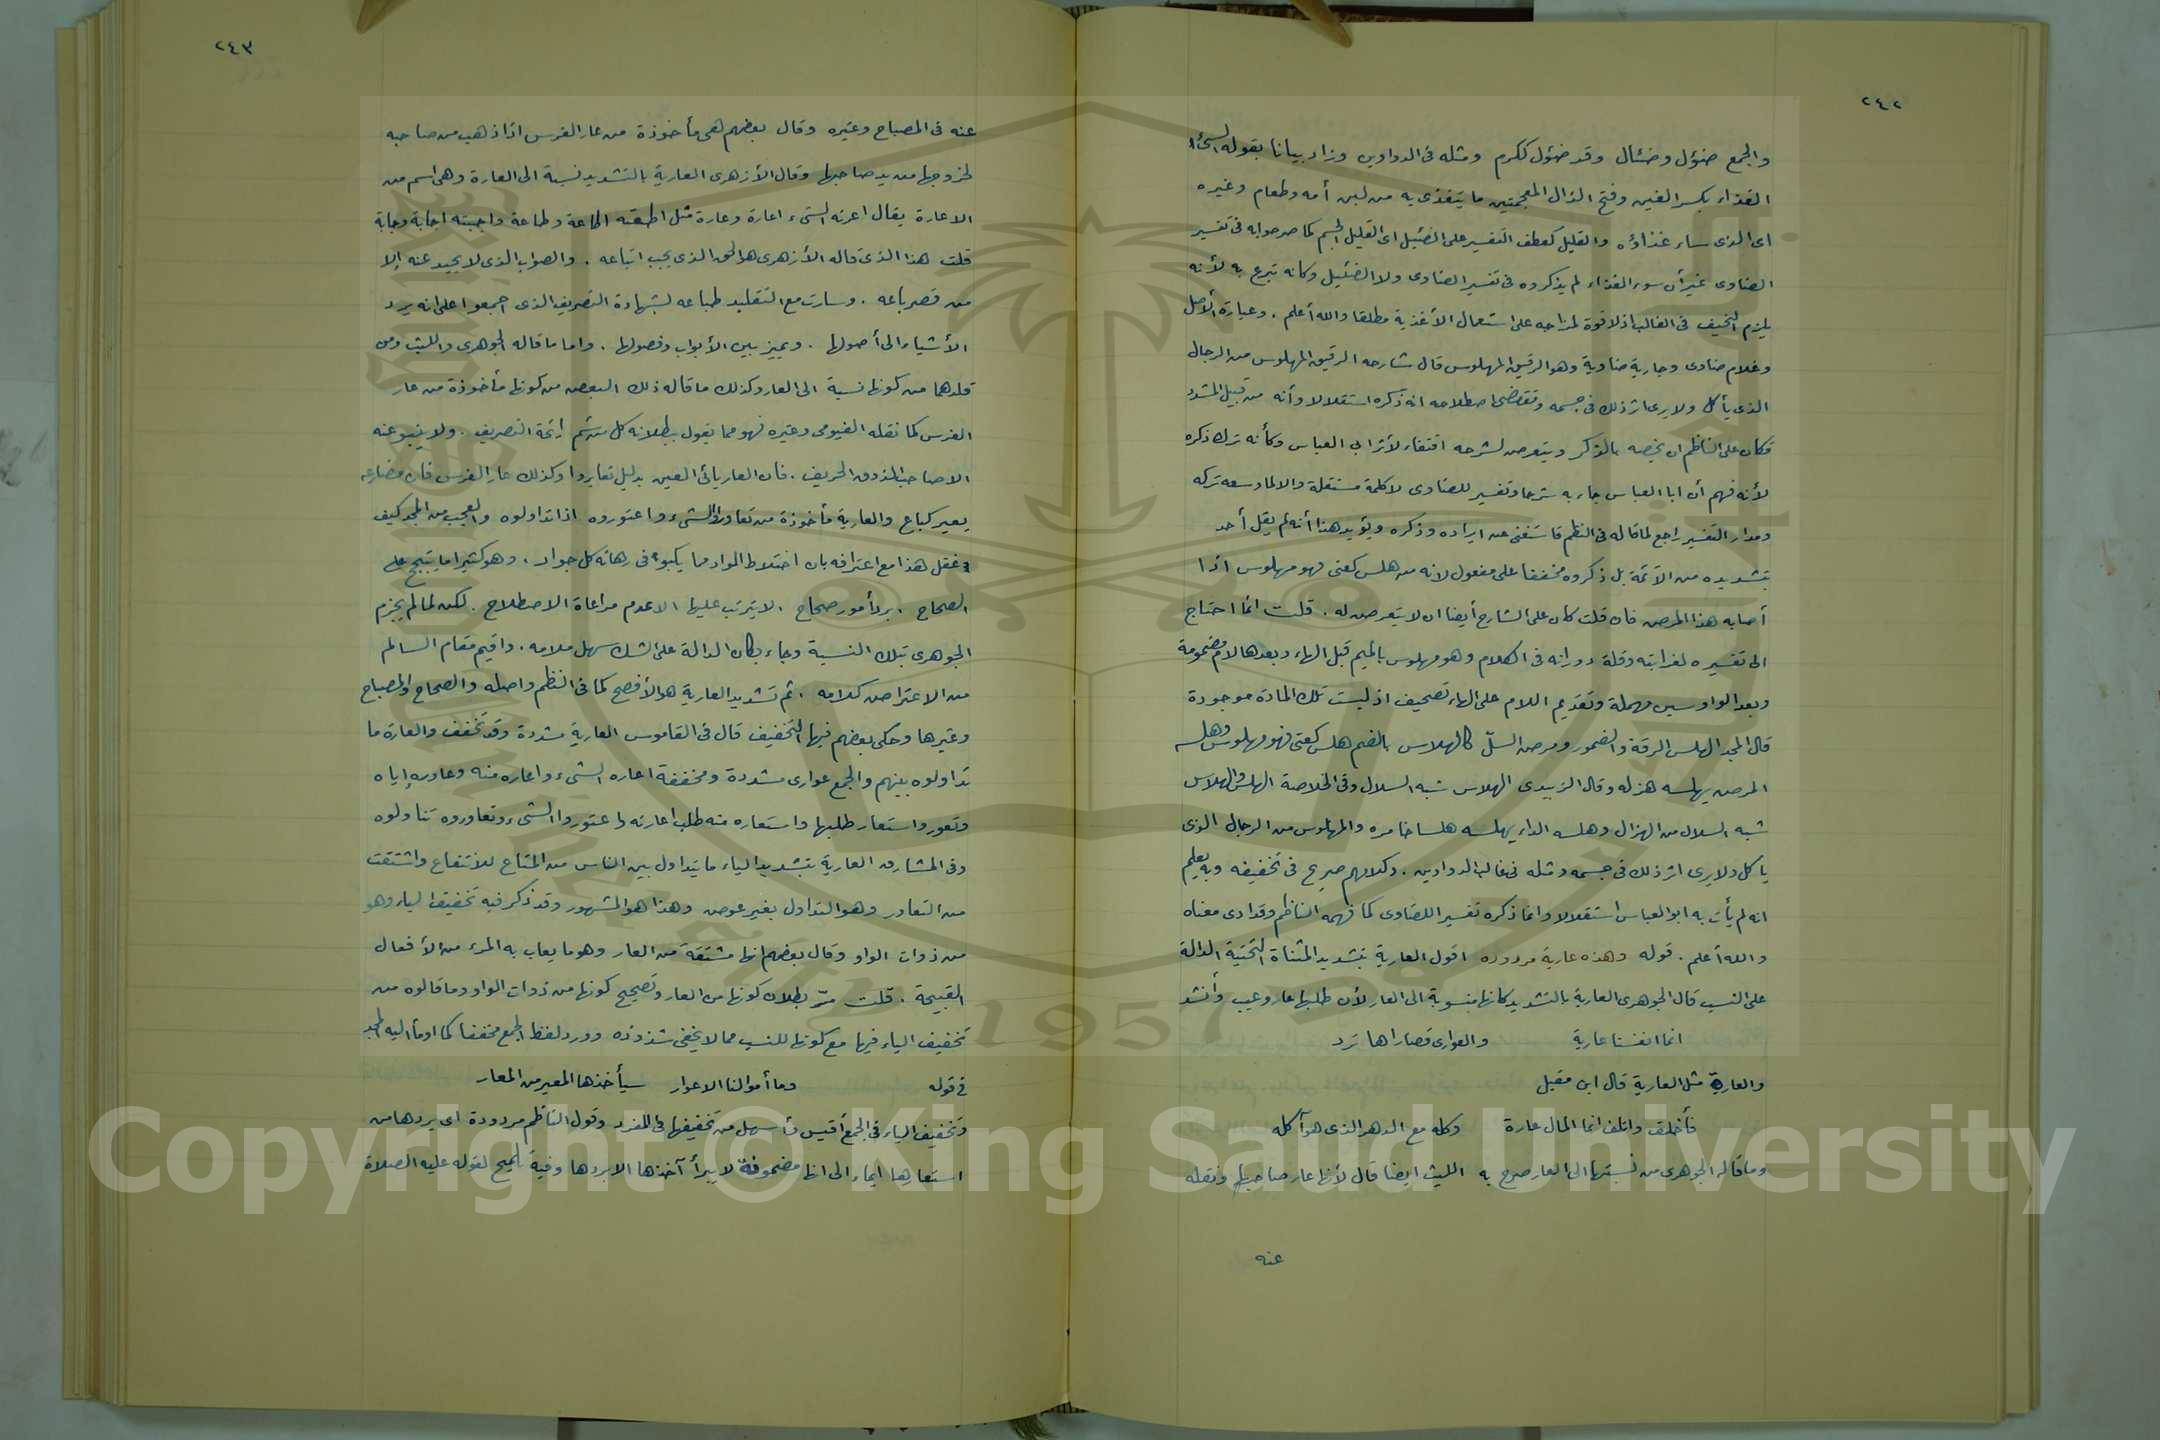 ٢٤٢
والجمع ضؤل وضئال وقد ضؤل ككرم ومثله فى الدواوين وزاد بيانا بقوله السئ
الغذاء بكسر الغين وفتح الذال المعجمتين ما يتغذى به من لبن أمه وطعام وغيره
اى الذى ساء غذاؤه والقليل كعطف التفسير على الضئيل اى القليل الجسم كما صرحوا به فى تفسير
الضاوى غير أن سوء الغذاء لم يذكروه فى تفسير الضاوى ولا الضئيل وكانه تبرع به لأنه
يلزم النحيف فى الغالب اذ لا قوة لمزاجه على استعمال الأغذية مطلقا والله أعلم . وعبارة الأصل
وغلام ضاوى وجارية ضاوية وهو الرقيق المهلوس قال شارحه الرقيق المهلوس من الرجال
الذى يأكل ولا يرى اثر ذلك فى جسمه ومقتضى اصطلاحه انه ذكره استقلالا وأنه من قبيل المشدد
فكان على الناظم ان يخصه بالذكر ويتعرض لشرحه اقتفاء لأثر ابى العباس وكأنه ترك ذكره
لأنه فهم أن ابا العباس جاء به شرحا وتفسير للضاوى لا كلمة مستقلة والا لما وسعه تركه
ومدار التفسير راجع لما قاله فى النظم فاستغنى عن ايراده وذكره ويؤيد هذا أنه لم يقل أحد
بتشديده من الأئمة بل ذكروه مخففا على مفعول لانه من هلس كعنى فهو مهلوس اذا
أصابه هذا المرض فان قلت كان على الشارح أيضا ان لا يتعرض له . قلت انما احتاج
الى تفسيره لغرابته وقلة دورانه فى الكلام وهو مهلوس بالميم قبل الهاء وبعدها لام مضمومة
وبعد الواو سين مهملة وتقديم اللام على الهاء تصحيف اذ ليست تلك المادة موجودة
قال المجد الهلس الرقة والضمور ومرض السلّ كالهلاس بالضم هلس كعنى فهو مهلوس وهلسه
المرض يهلسه هزله وقال الزبيدى الهلاس شبه السلال وفى الخلاصة الهلس والهلاس
شبه السلال من الهزال وهلسه الداء يهلسه هلسا خامره والمهلوس من الرجال الذى
ياكل ولا يرى اثر ذلك فى جسمه ومثله فى غالب الدواوين . وكلامهم صريح فى تخفيفه وبه يعلم
انه لم يأت به ابو العباس استقلالا وانما ذكره تفسيرا للضاوى كما فهمه الناظم وقد ادى معناه
والله أعلم . قوله وهذه عارية مردوده اقول العارية بتشديد المثناة التحتية الدالة
على النسب قال الجوهرى العارية بالتشديد كانها منسوبة الى العار لأن طلبها عار وعيب وأنشد
انما انفسنا عارية والعوارى قصاراها ترد
والعارة مثل العارية قال ابن مقبل
فأخلف واتلف انما المال عارة وكله مع الدهر الذى هو آكله
وما قاله الجوهرى من نسبتها الى العار صرح به الليث ايضا قال لأنها عار صاحبها ونقله
عنه
٢٤٣
عنه فى المصباح وغيره وقال بعضهم هى مأخوذة من عار الفرس اذا ذهب من صاحبه
لخروجها من يد صاحبها وقال الأزهرى العارية بالتشديد نسبة الى العارة وهى اسم من
الاعارة يقال اعرته الشىء اعارة وعارة مثل اطعته اطاعة وطاعة واجبته اجابة وجابة
قلت هذا الذى قاله الأزهرى هو الحق الذى يجب اتباعه . والصواب الذى لا يحيد عنه إلا
من قصر باعه . وسارت مع التقليد طباعه لشهادة التصريف الذى اجمعوا على انه يرد
الأشياء الى أصولها . ويميز بين الأبواب وفصولها . واما ما قاله الجوهرى والليث ومن
قلدهما من كونها نسبة الى العار وكذلك ما قاله ذلك البعض من كونها مأخوذة من عار
الفرس كما نقله الفيومى وغيره فهو مما يقول ببطلانه كل من شم رائحة التصريف . ولا ينبو عنه
الا صاحب الذوق الحريف . فان العار يائى العين بدليل تعايروا وكذلك عار الفرس فان مضارعه
يعير كباع والعارية مأخوذة من تعاوروا الشىء واعتوروه اذا تداولوه والعجب من المجد كيف
غفل هذا مع اعترافه بان اختلاط المواد مما يكبو فى رهانه كل جواد . وهو كثيرا ما يتبجح على
الصحاح . بردأمور صحاح الا يترتب عليها الا عدم مراعاة الاصطلاح . لكن لما لم يجزم
الجوهرى بتلك النسبة وجاء بكأن الدالة على الشك سهل ملامه . واقيم مقام السالم
من الاعتراض كلامه . ثم تشديد العارية هو الأفصح كما فى النظم واصله والصحاح والمصباح
وغيرها وحكى بعضهم فيها التخفيف قال فى القاموس العارية مشددة وقد تخفف والعارة ما
تداولوه بينهم والجمع عوارى مشددة ومخففة اعاره الشىء واعاره منه وعاوره إياه
وتعور واستعار طلبها واستعاره منه طلب اعارته واعتوروا الشىء وتعاوروه تناولوه
وفى المشارق العارية بتشديد الياء ما يتداول بين الناس من المتاع للانتفاع واشتقت
من التعاور وهو التداول بغير عوض وهذا هو المشهور وقد ذكر فيه تخفيف الياء وهو
من ذوات الواو وقال بعضهم انها مشتقة من العار وهو ما يعاب به المرء من الأفعال
القبيحة . قلت مرّ بطلان كونها من العار وتصحيح كونها من ذوات الواو وما قالوه من
تخفيف الياء فيها مع كونها للنسب مما لا يخفى شذوذه وورد لفظ الجمع مخففا كما اومأ اليه المجد
فى قوله وما أموالنا الا عوار سيأخذها المعير من المعار
وتخفيف الياء فى الجمع أقيس وأسهل من تخفيفها فى المفرد وقول الناظم مردودة اى يردها من
استعارها ايماء الى انها مضمونة لا يبرأ آخذها الا بردها وفيه تلميح لقوله عليه الصلاة
Copyright © King Saud University
1957